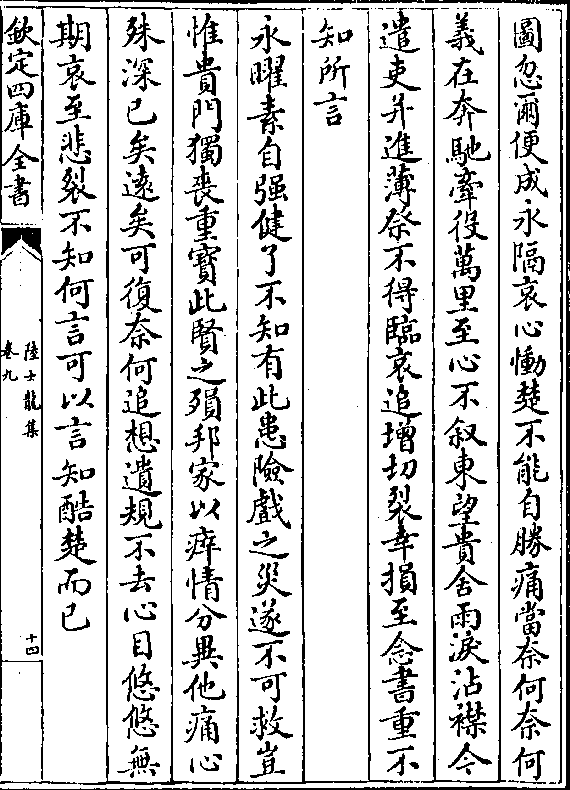 圖忽爾便成永隔哀心慟楚不能自勝痛當奈何奈何
義在奔馳牽役萬里至心不叙東望貴舍雨淚沾襟今
遣吏并進薄祭不得臨哀追增切裂幸損至念書重不
知所言
永曜素自强健了不知有此患險戲之災遂不可救豈
惟貴門獨喪重寳此賢之殞邦家以瘁情分異他痛心
殊深已矣遠矣可復奈何追想遺規不去心目悠悠無
期哀至悲裂不知何言可以言知酷楚而已
欽定四庫全書
陸士龍集
卷九
十四